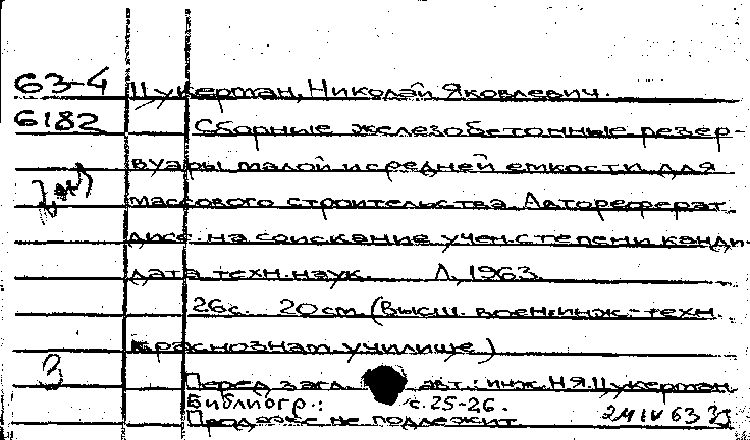 63-4 Цукерман, Николай Яковлевич.
6182 Сборные железобетонные резер-
вуары малой и средней емкости для
массового строительства. Автореферат
дисс. на соискание учен. степени канди-
дата техн. наук. Л., 1963.
26с. 20см. (Высш. воен. инж.-техн.
Краснознам. училище)
3 Перед загл. авт.: инж. Н.Я. Цукерман.
Библиогр.: с. 25-26.
Продаже не подлежит.